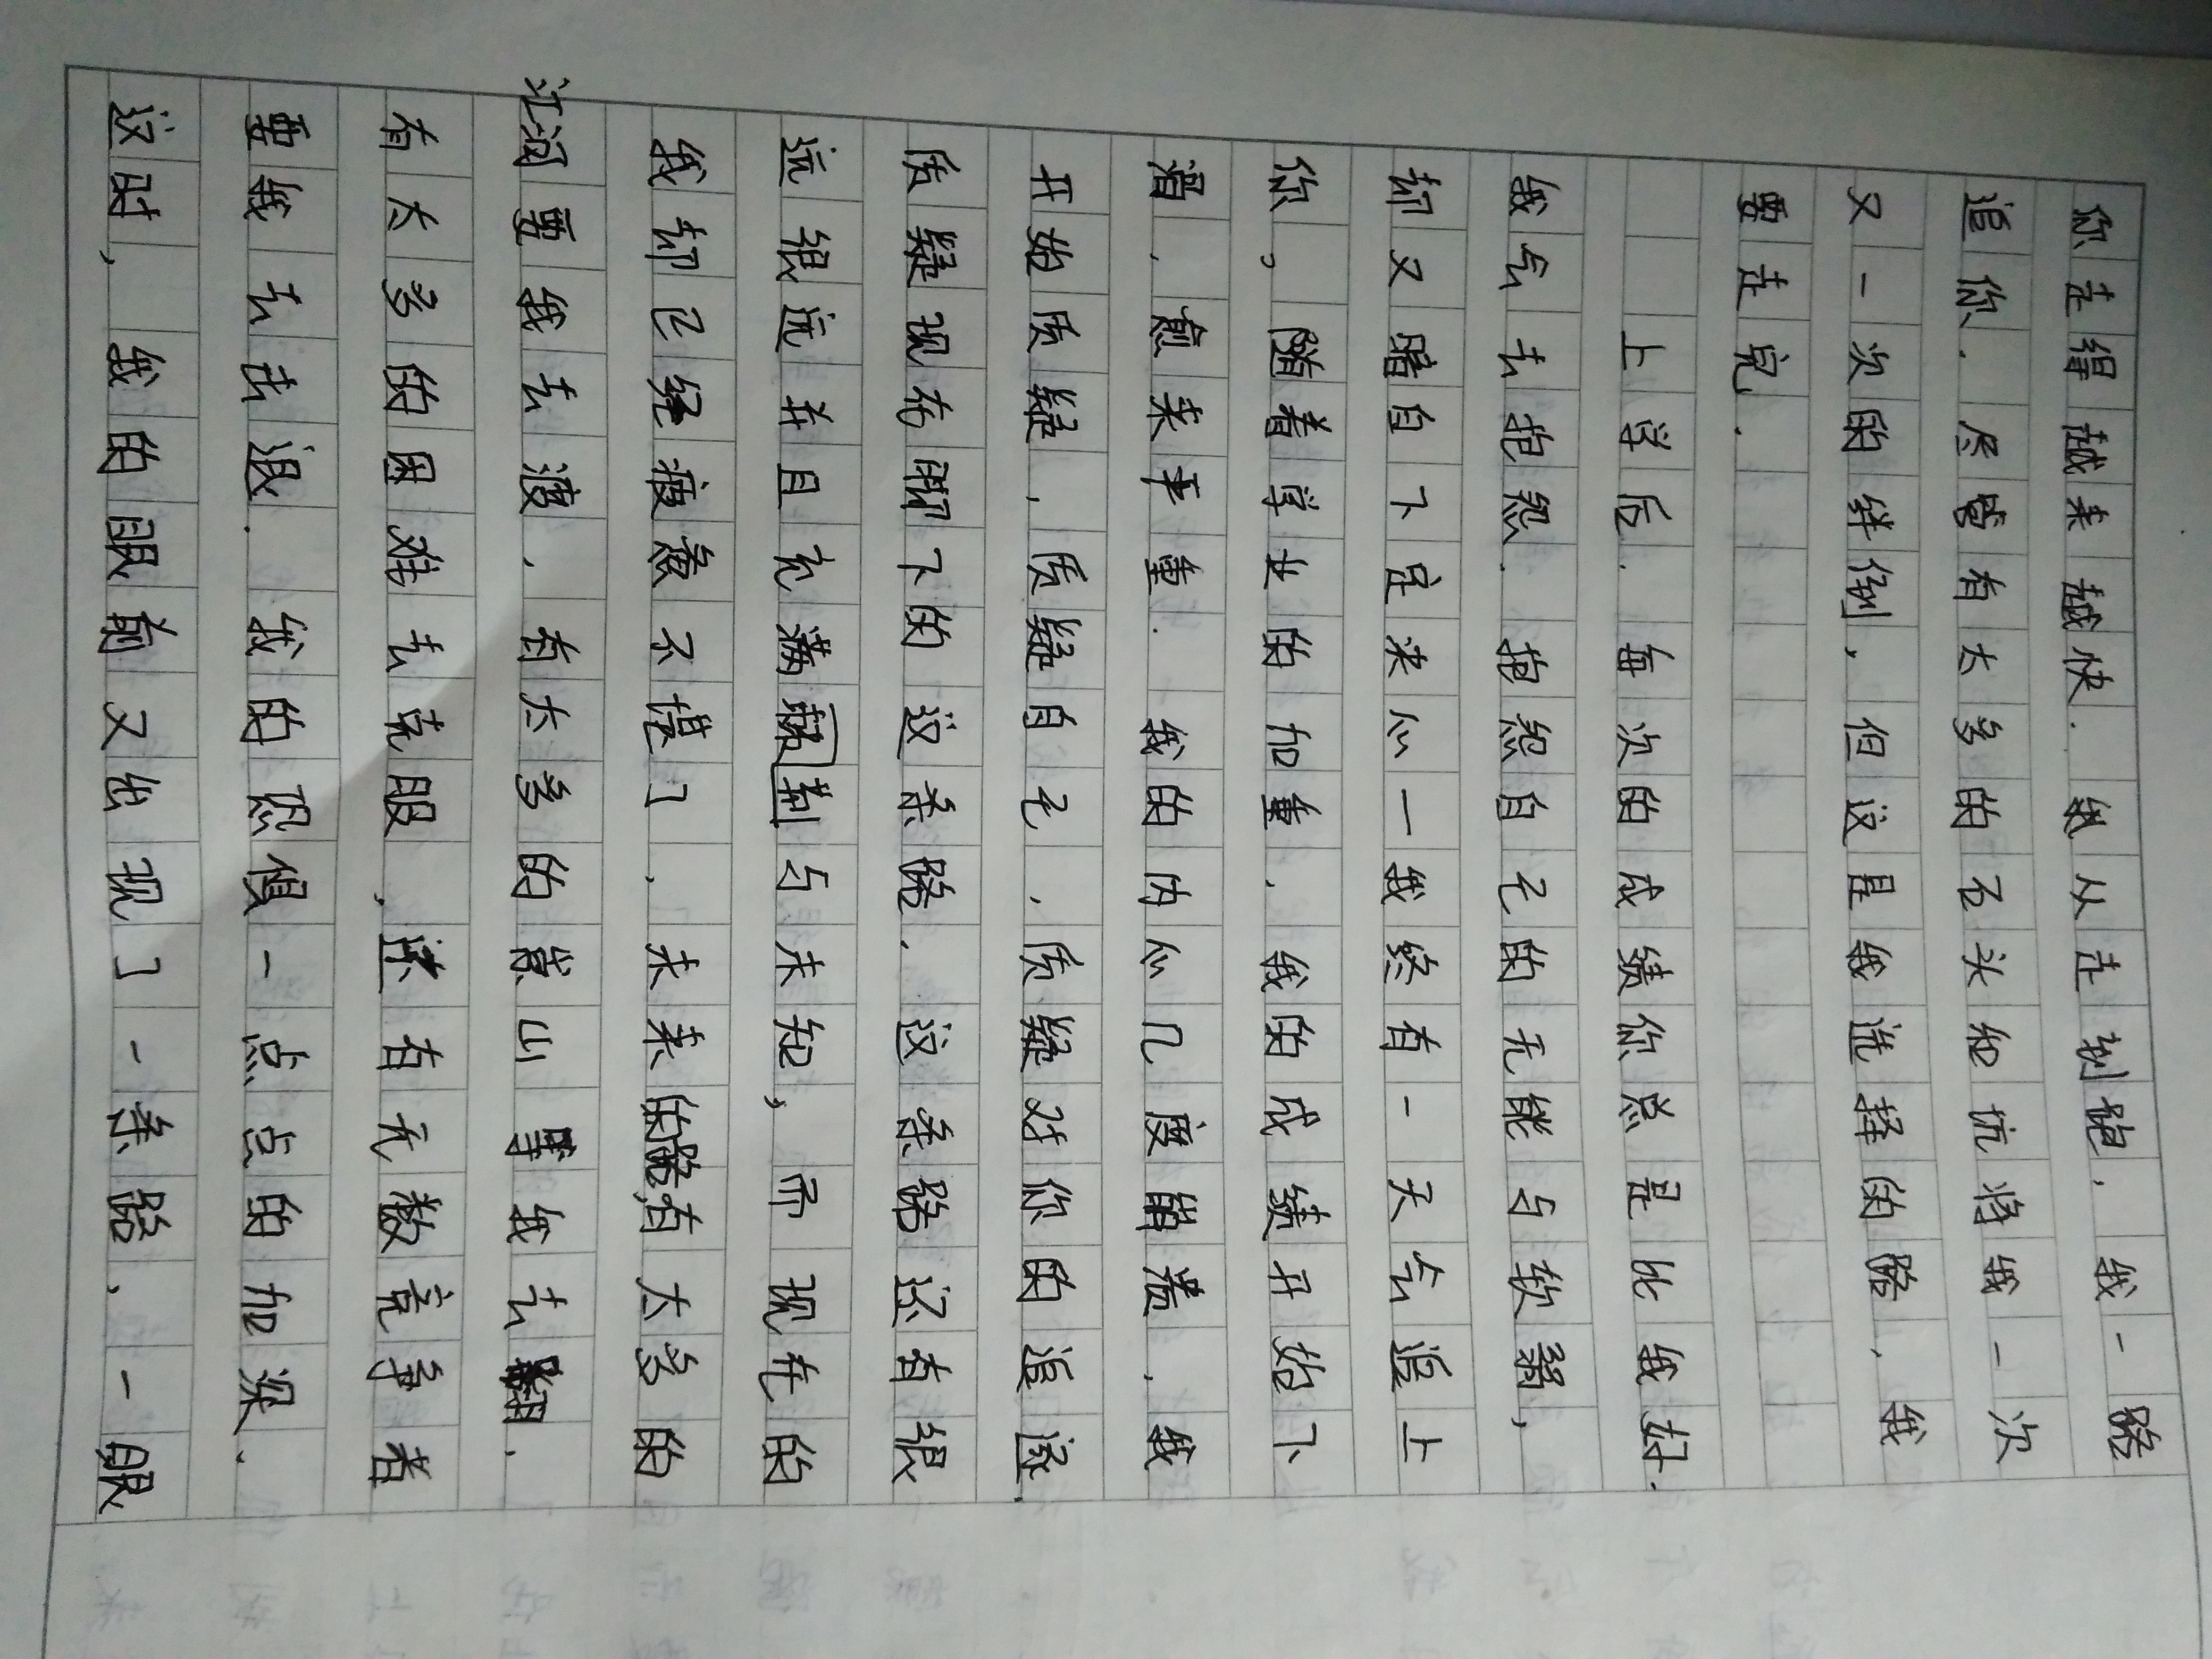 你走得越来越快．我从走到跑．我一路
追你．尽管有太多的石头和坑将我一次
又一次的绊倒，但这是我选择的路．我
要走完．
上学后．每次的成绩你总是比我好．
我会去抱怨．抱怨自己的无能与软弱，
却又暗自下定决心一我终有一天会追上
你，随着学业的加重．我的成绩开始下
滑．愈来事重．我的内心几度崩溃．我
开始质疑．质疑自己．质疑对你的追逐．
质疑现在脚下的这条路．这条路还有很
远很远并且充满荆棘与未知，而现在的
我却已经疲惫不堪了．未来的路，有太多的
江河要我去渡．有太多的崇山等我去翻．
有太多的困难去克服．还有无数竞争者
要我去击退．我的恐惧一点点的加深．
这时，我的眼前又出现了一条路．一眼